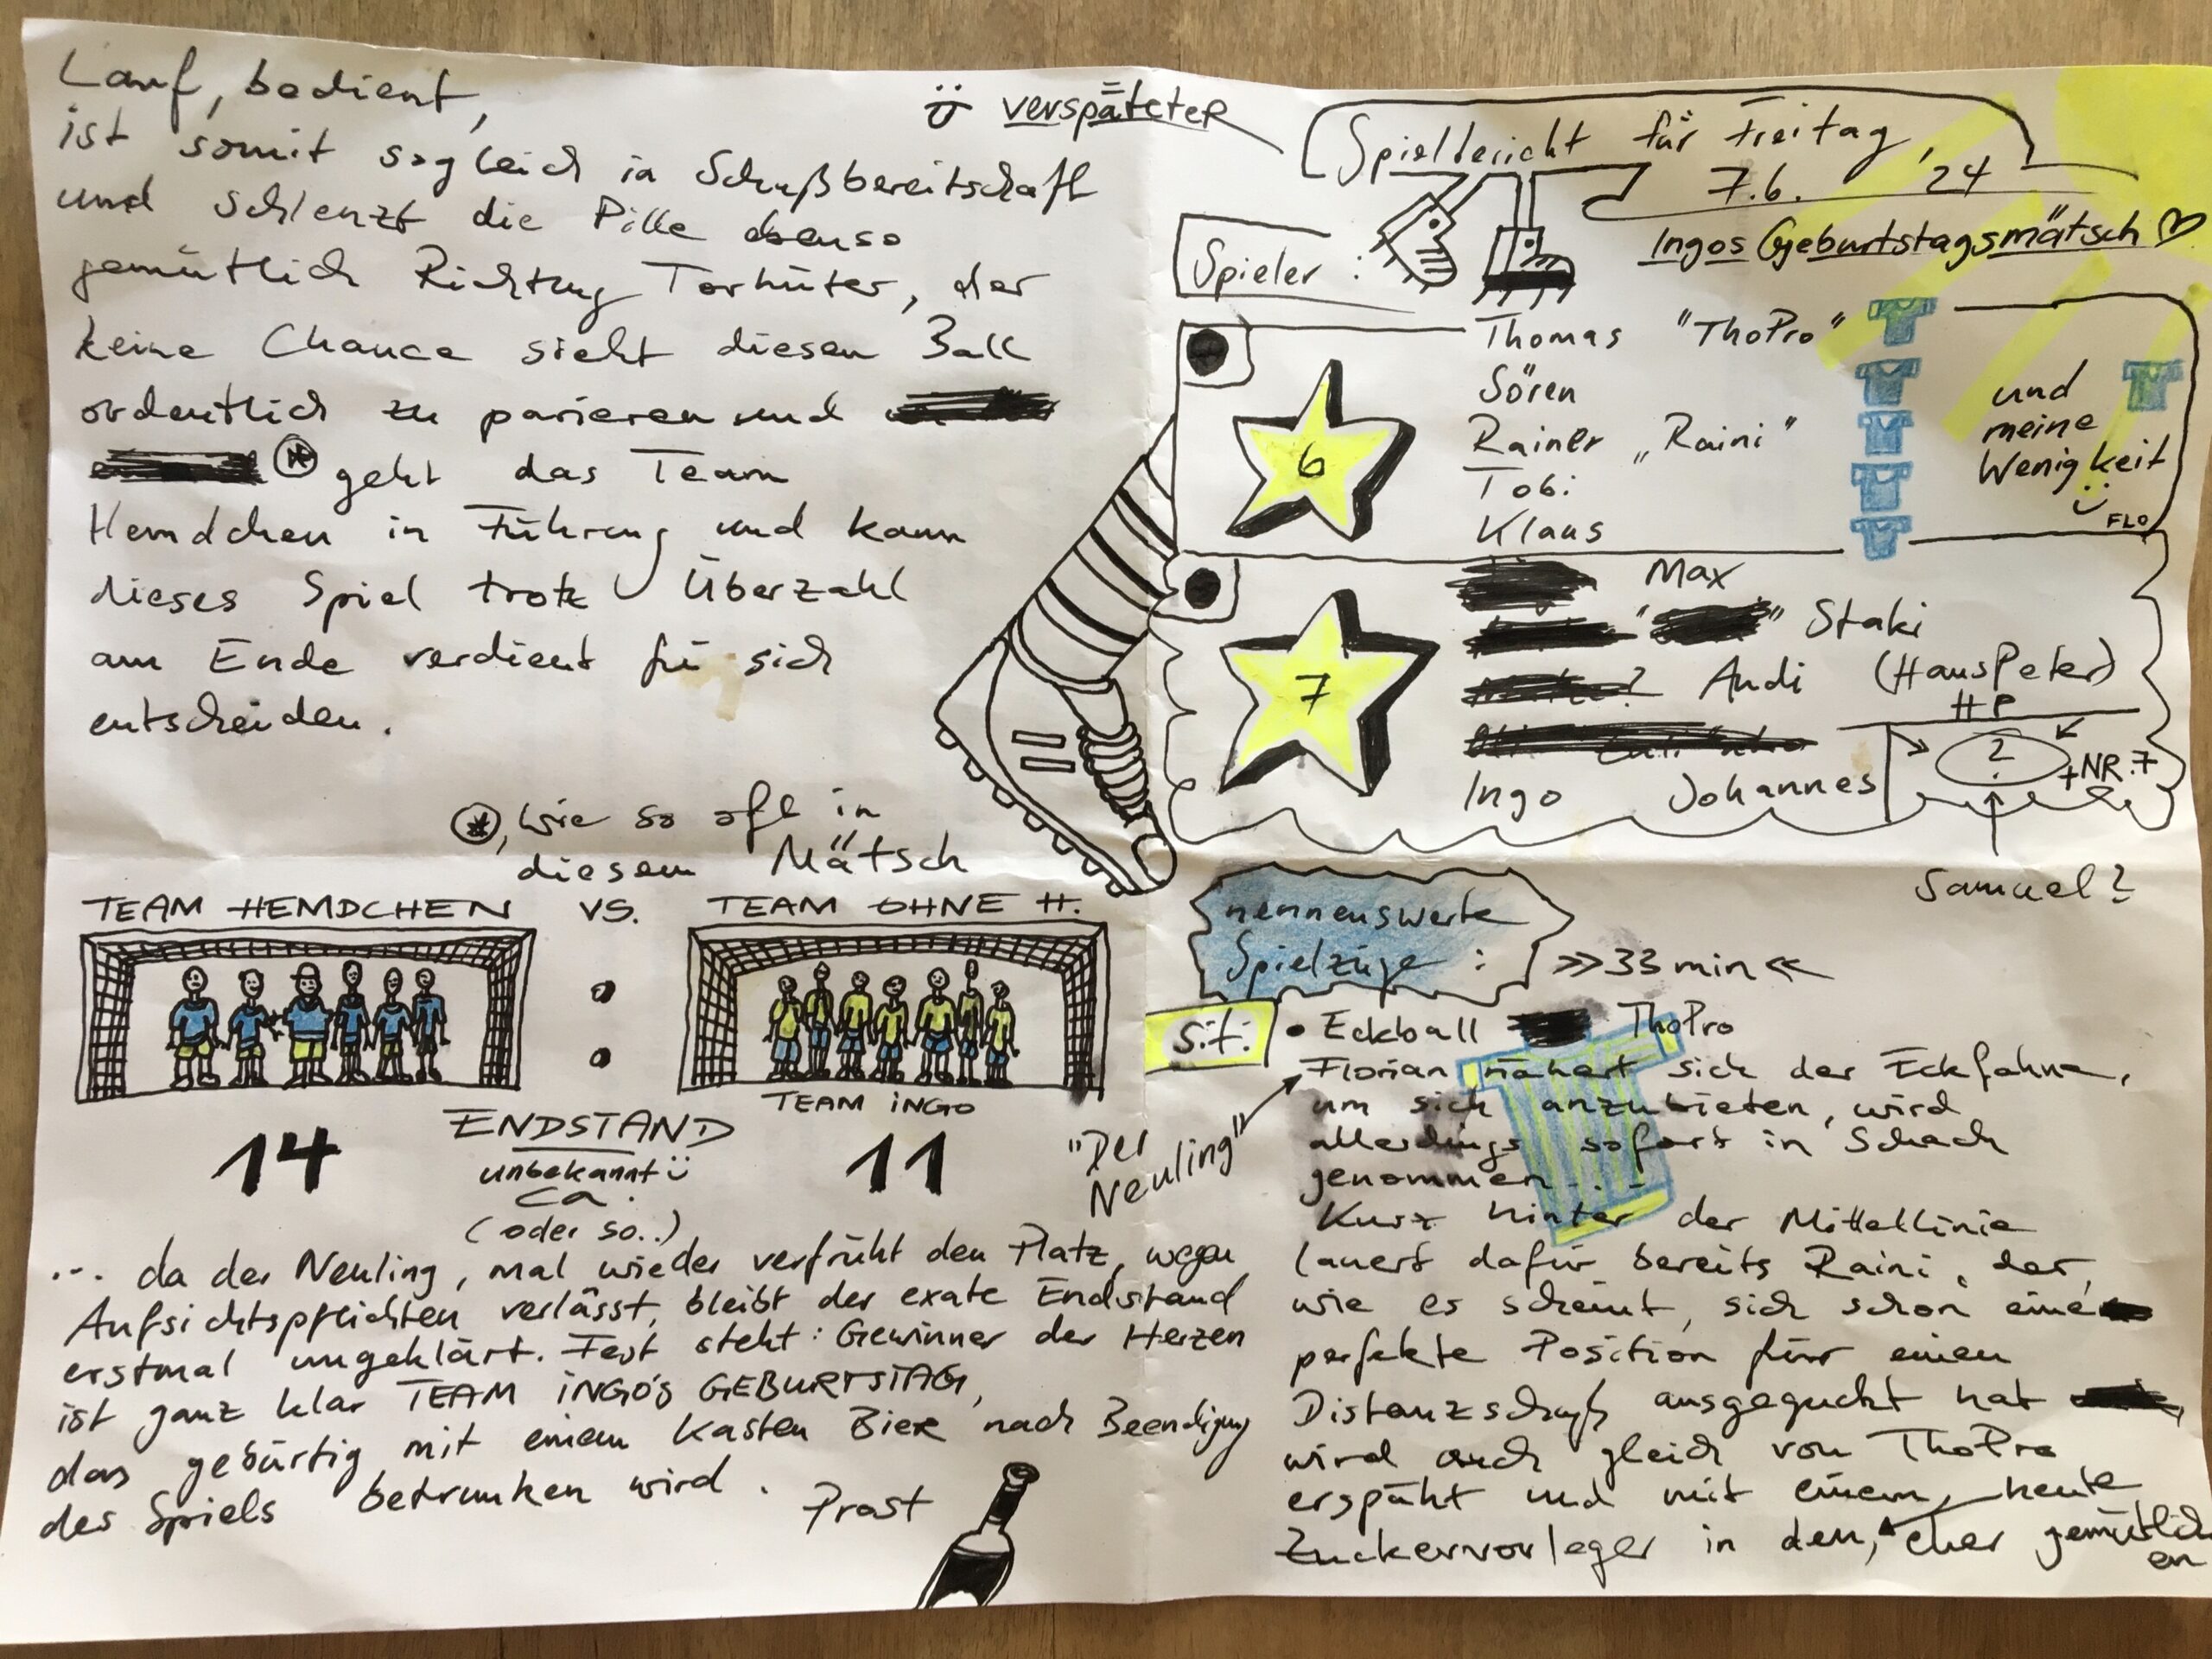 ü verspäteter
Spielbericht für Freitag,
7.6. '24
Ingos Geburtstagsmätsch
Spieler :
6
Thomas "ThoPro"
Sören
Rainer „Raini"
Tobi
Klaus
und
meine
Wenigkeit
FLO
7
Max
Staki
Andi (HansPeter)
HP
Ingo Johannes
?
+NR.7
Samuel?
nennenswerte
Spielzüge :
>>33 min<<
Sit:
• Eckball ThoPro
"Der
Neuling"
Florian nähert sich der Eckfahne,
um sich anzubieten, wird
allerdings sofort in Schach
genommen...
Kurz hinter der Mittellinie
lauert dafür bereits Raini, der,
wie es scheint, sich schon eine
perfekte Position für einen
Distanzschuß ausgeguckt hat
wird auch gleich von ThoPro
erspäht und mit einem
Zuckervorleger in den, heute eher gemütlich
en
Lauf, bedient,
ist somit sogleich in Schußbereitschaft
und schlenzt die Pille ebenso
gemütlich Richtung Torhüter, der
keine Chance sieht diesen Ball
ordentlich zu parieren und
* geht das Team
Hemdchen in Führung und kann
dieses Spiel trotz Überzahl
am Ende verdient für sich
entscheiden.
*, wie so oft in
diesem Mätsch
TEAM HEMDCHEN VS. TEAM OHNE H.
TEAM INGO
14 : 11
ENDSTAND
unbekannt ü
ca.
(oder so..)
... da der Neuling, mal wieder verfrüht den Platz, wegen
Aufsichtspflichten verlässt, bleibt der exate Endstand
erstmal ungeklärt. Fest steht: Gewinner der Herzen
ist ganz klar TEAM INGO'S GEBURTSTAG,
das gebürtig mit einem Kasten Bier nach Beendigung
des Spiels betrunken wird.
Prost